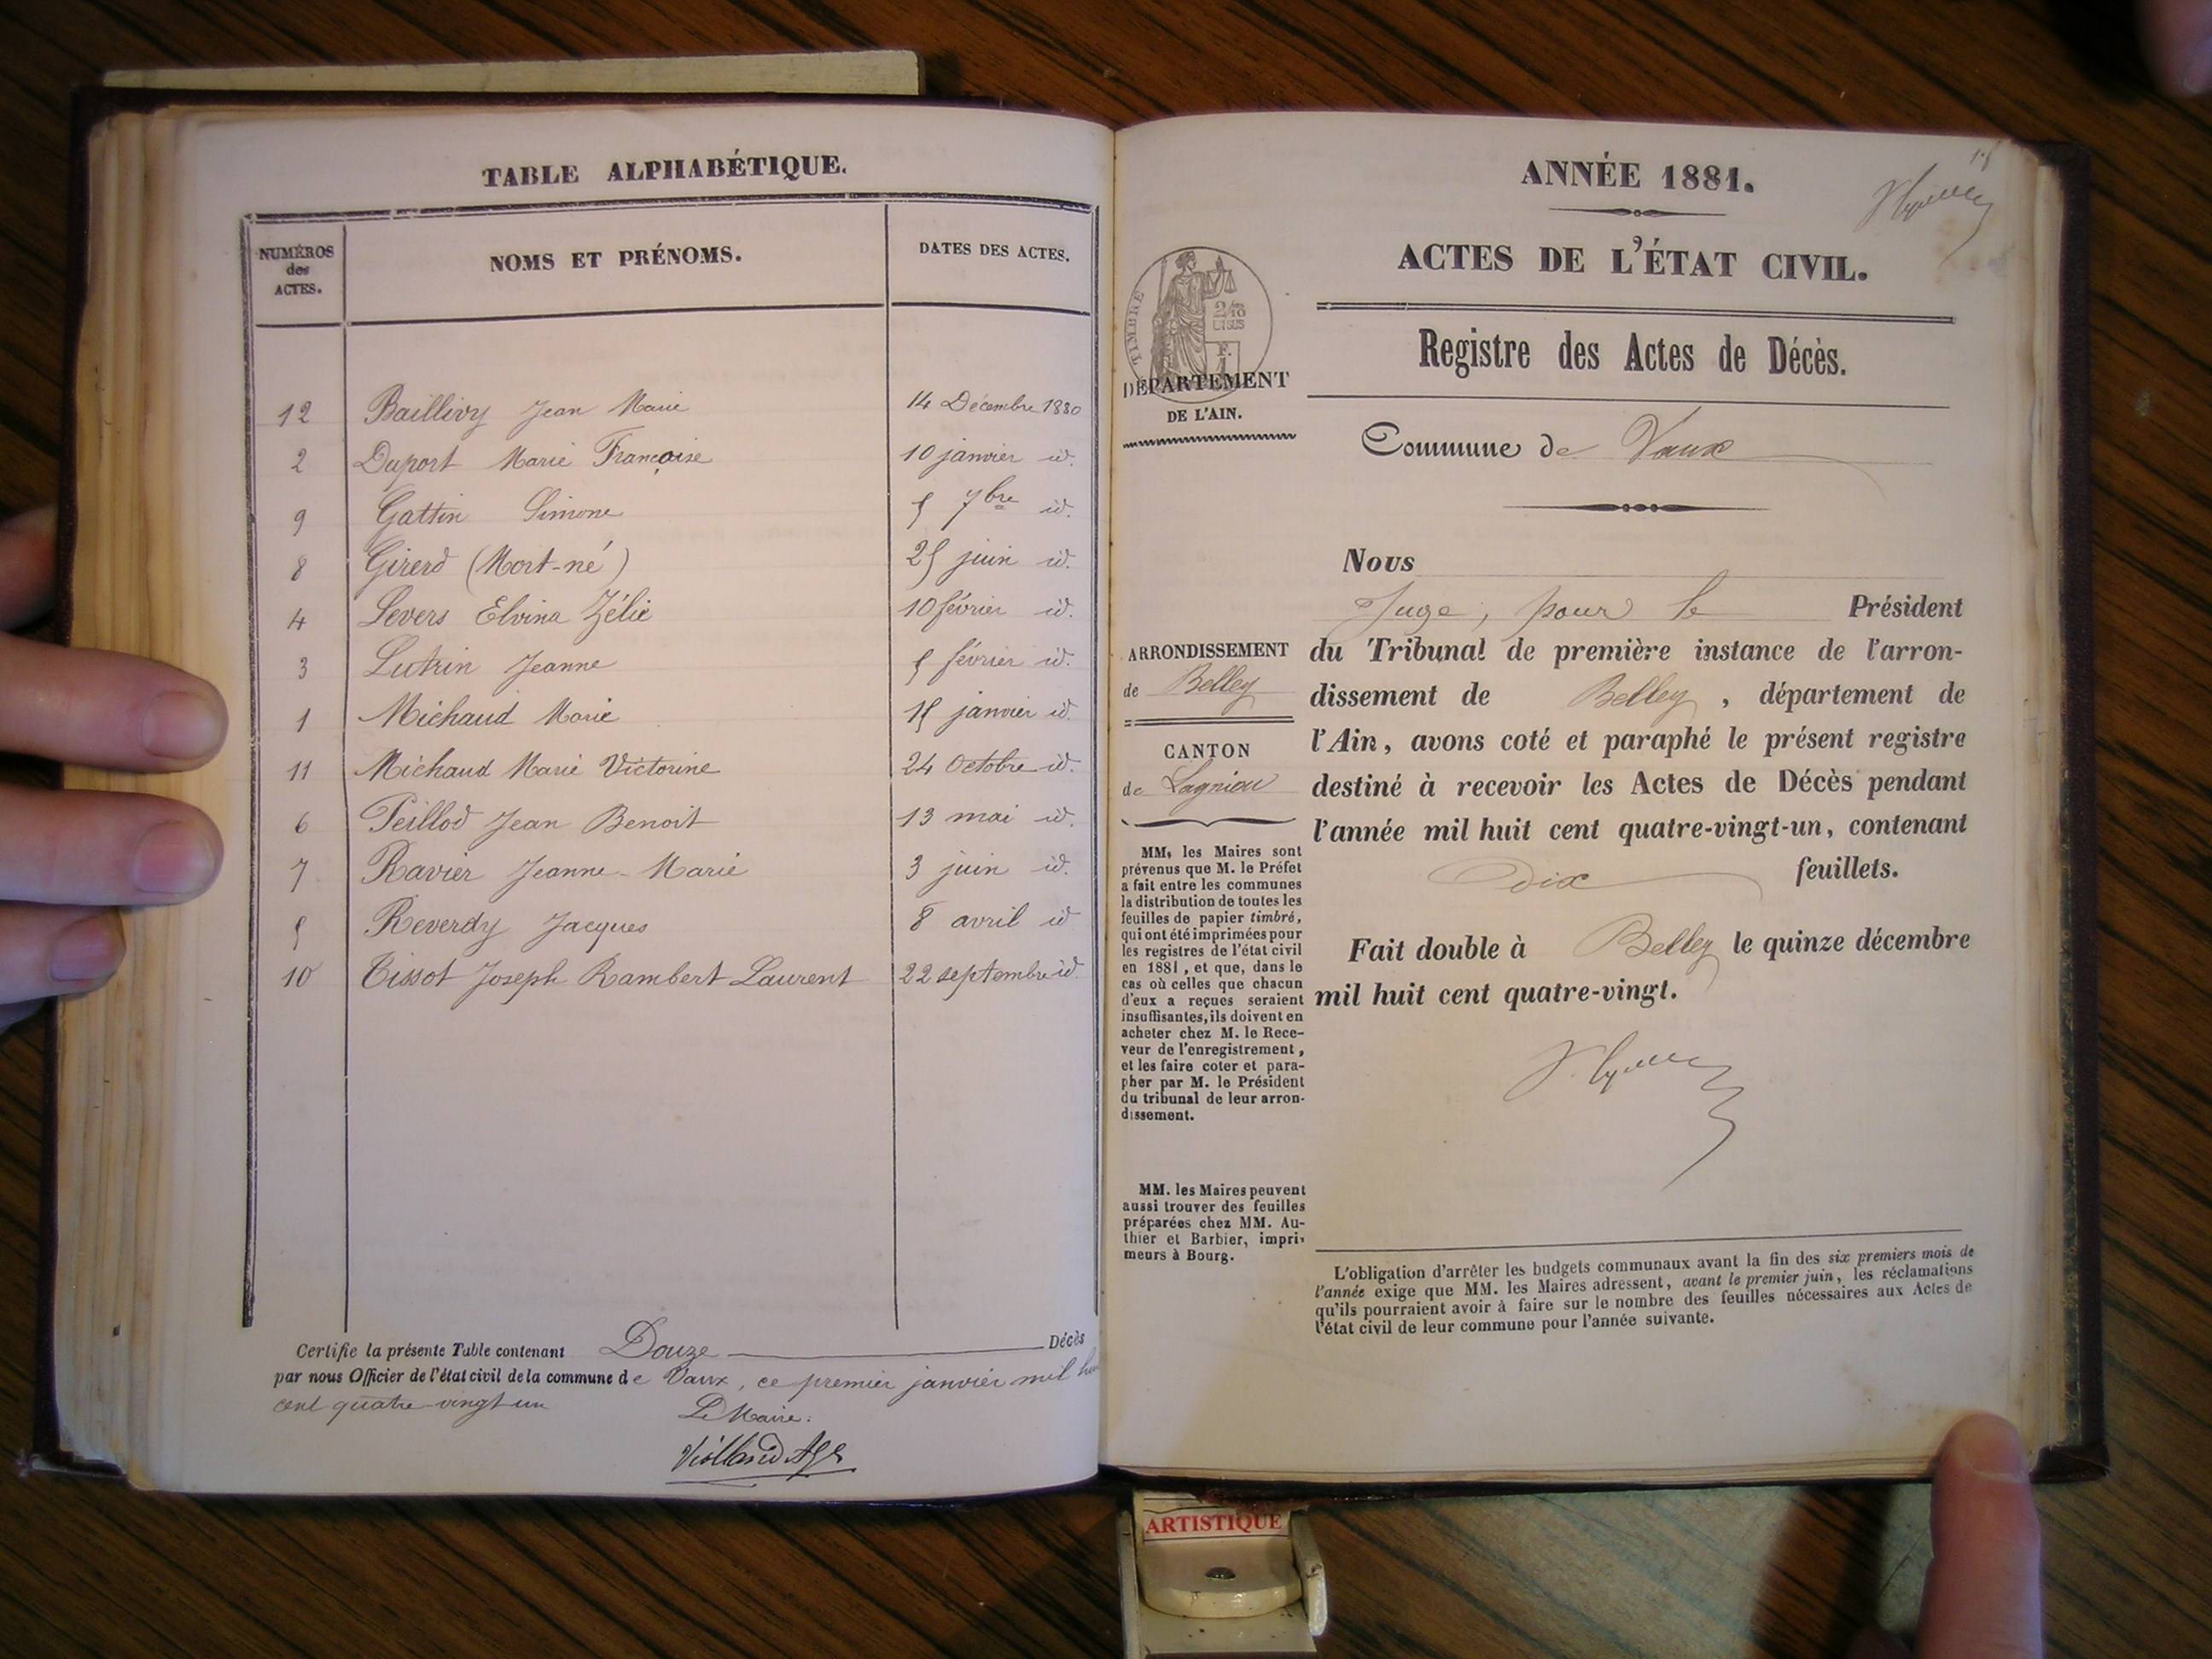 TABLE ALPHABÉTIQUE.
NUMÉROS des ACTES. NOMS ET PRÉNOMS. DATES DES ACTES.
12 Baillivy Jean Marie 14 Décembre 1880
2 Duport Marie Françoise 10 janvier id.
9 Gattin Simone 5 7bre id.
8 Girerd (Mort-né) 25 juin id.
4 Levers Elvina Zélie 10 février id.
3 Lutrin Jeanne 5 février id.
1 Michaud Marie 15 janvier id.
11 Michaud Marie Victorine 24 Octobre id.
6 Peillod Jean Benoit 13 mai id.
7 Ravier Jeanne-Marie 3 juin id.
5 Reverdy Jacques 8 avril id
10 Tissot Joseph Rambert Laurent 22 septembre id.
Certifie la présente Table contenant Douze Décès
par nous Officier de l'état civil de la commune de Vaux, ce premier janvier mil
cent quatre-vingt un
Le Maire:
ANNÉE 1881.
ACTES DE L'ÉTAT CIVIL.
Registre des Actes de Décès.
TIMBRE
2/10
EN SUS
F.
DÉPARTEMENT
DE L'AIN.
Commune de Vaux
Nous
Juge, pour le Président
du Tribunal de première instance de l'arron-
dissement de Belley, département de
l'Ain, avons coté et paraphé le présent registre
destiné à recevoir les Actes de Décès pendant
l'année mil huit cent quatre-vingt-un, contenant
dix feuillets.
Fait double à Belley le quinze décembre
mil huit cent quatre-vingt.
ARRONDISSEMENT
de Belley
CANTON
de Lagnieu
MM. les Maires sont
prévenus que M. le Préfet
a fait entre les communes
la distribution de toutes les
feuilles de papier timbré,
qui ont été imprimées pour
les registres de l'état civil
en 1881, et que, dans le
cas où celles que chacun
d'eux a reçues seraient
insuffisantes, ils doivent en
acheter chez M. le Rece-
veur de l'enregistrement,
et les faire coter et para-
pher par M. le Président
du tribunal de leur arron-
dissement.
MM. les Maires peuvent
aussi trouver des feuilles
préparées chez MM. Au-
thier et Barbier, impri-
meurs à Bourg.
L'obligation d'arrêter les budgets communaux avant la fin des six premiers mois de
l'année exige que MM. les Maires adressent, avant le premier juin, les réclamations
qu'ils pourraient avoir à faire sur le nombre des feuilles nécessaires aux Actes de
l'état civil de leur commune pour l'année suivante.
ARTISTIQUE